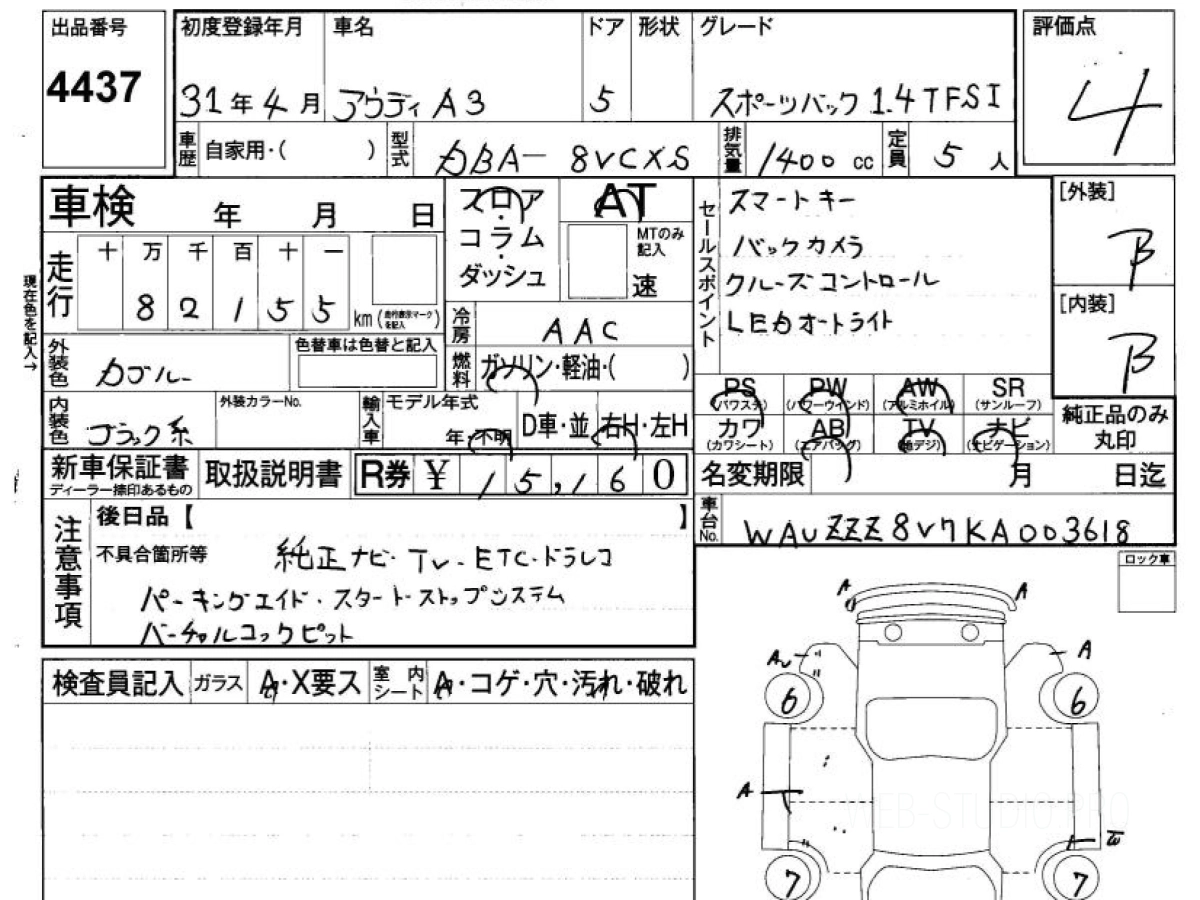 出品番号 初度登録年月 車名 ドア 形状 グレード 評価点
4437 31年4月 アウディA3 5 スポーツバック 1.4TFSI 4
車歴 自家用・( ) 型式 DBA-8VCXS 排気量 1400 cc 定員 5 人
車検 年 月 日
フロア・コラム・ダッシュ
AT
MTのみ記入
速
セールスポイント
スマートキー
バックカメラ
クルーズコントロール
LEDオートライト
[外装]
B
[内装]
B
現在色を記入→
走行 十 万 千 百 十 一
82155 km (走行表示マークを記入)
冷房 AAC
外装色
色替車は色替と記入
燃料 ガソリン・軽油・( )
PS (パワステ) PW (パワーウインド) AW (アルミホイル) SR (サンルーフ)
カワ (カワシート) AB (エアバッグ) TV (地デジ) ナビ (ナビゲーション)
純正品のみ丸印
内装色 ブラック系 外装カラーNo. 輸入車 モデル年式 年・不明 D車・並 右H・左H
新車保証書 ディーラー捺印あるもの 取扱説明書 R券 ¥ 15,160
名変期限 月 日迄
車台No. WAUZZZ8V7KA003618
注意事項
後日品【 】
不具合箇所等 純正ナビ・TV・ETC・ドラレコ
パーキングエイド・スタートストップシステム
バーチャルコックピット
ロック車
検査員記入 ガラス A・X要ス 室内シート A・コゲ・穴・汚れ・破れ
A A
A A
6 6
A
7 7
WEB-STUDIO.PRO